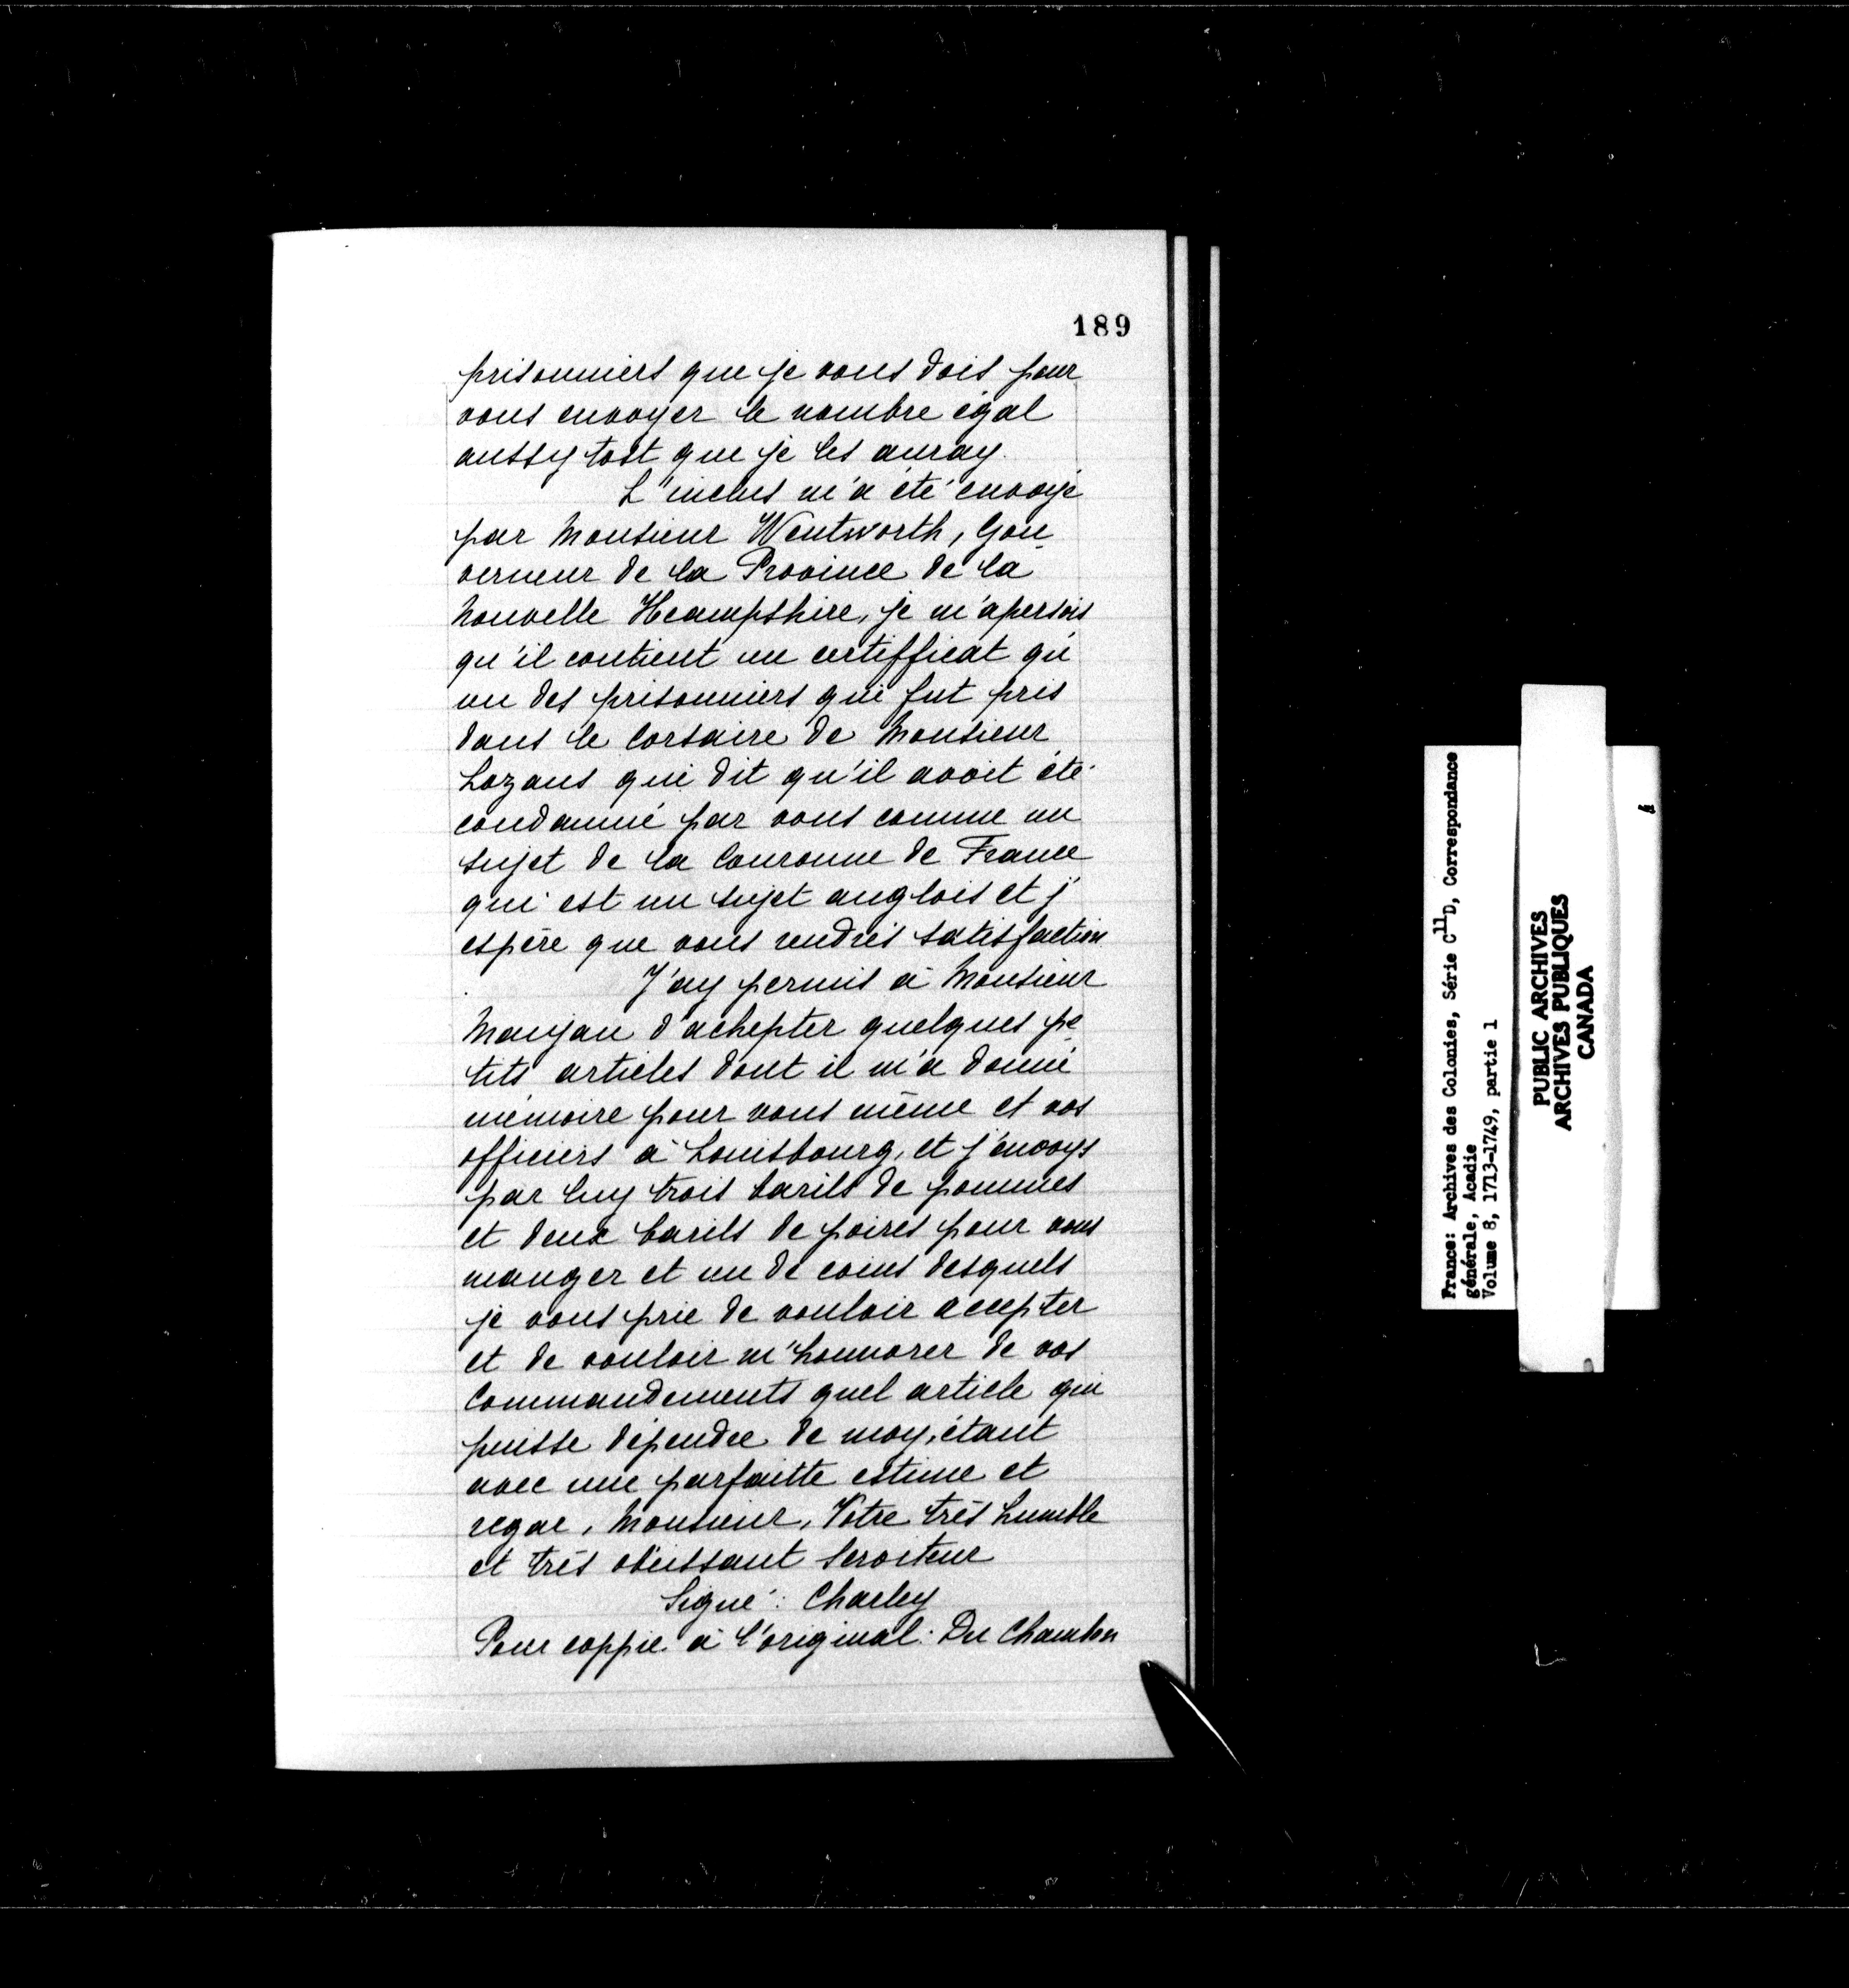 189
prisonniers que je vous dois pour
vous envoyer le nombre égal
aussy tost que je les auray.
L'inclus m'a été envoyé
par Monsieur Wentworth, Gou
verneur de la Province de la
Nouvelle Heampshire, je m'apersois
qu'il contient un certifficat qu'
un des prisonniers qui fut pris
dans le Corsaire de Monsieur
Lozans qui dit qu'il avoit été
condamné par vous comme un
sujet de la Couronne de France
qui est un sujet anglois et j'
espère que vous rendrés satisfaction
J'ay permis à Monsieur
Maujan d'achepter quelques pe
tits articles dont il m'a donné
mémoire pour vous même et vos
officiers à Louisbourg, et j'envoys
par luy trois barils de pommes
et deux barils de poires pour vous
manger et un de coins desquels
je vous prie de vouloir accepter
et de vouloir m'honnorer de vos
Commandements quel article qui
puisse dépendre de moy, étant
avec une parfaitte estime et
regar, Monsieur, Votre très humble
et très obéissant Serviteur
Signé : Charley
Pour coppie à l'original : Du Chambon
France: Archives des Colonies, Série C11D, Correspondance
générale, Acadie
Volume 8, 1713-1749, partie 1
PUBLIC ARCHIVES
ARCHIVES PUBLIQUES
CANADA